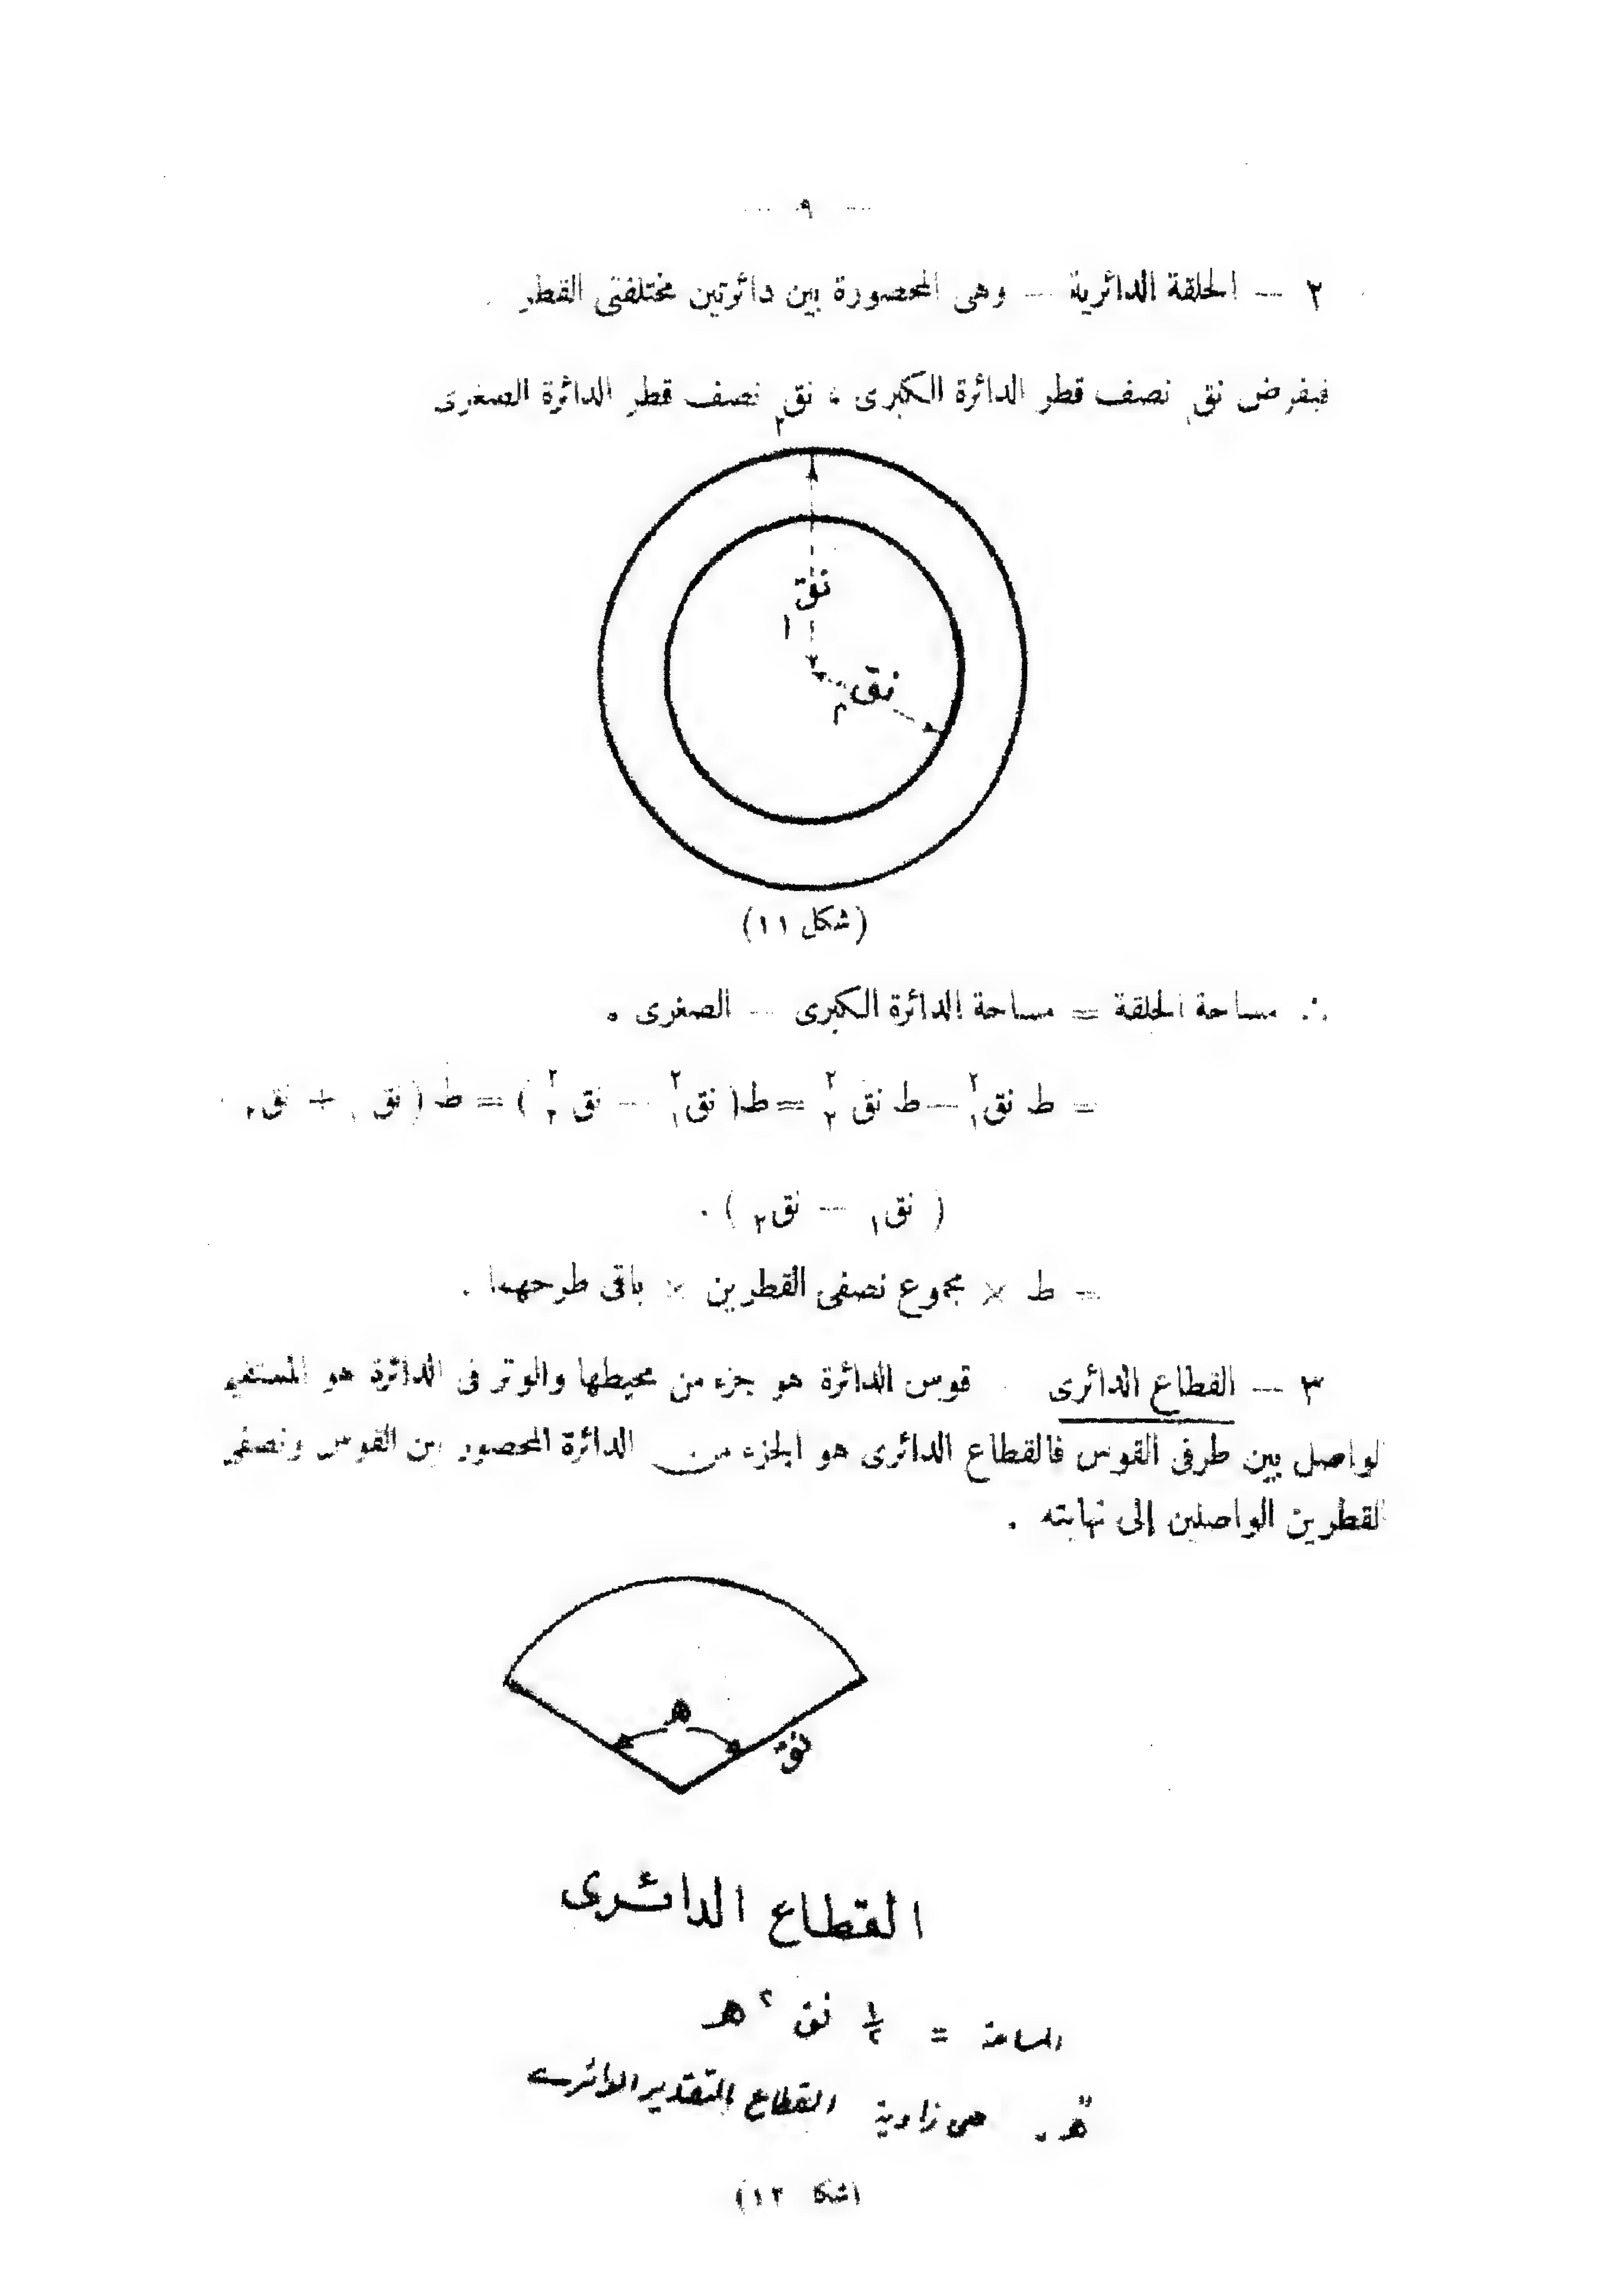 — ٩ —
٢ — الحلقة الدائرية — وهى المحصورة بين دائرتين مختلفتى القطر .
فبفرض نق١ نصف قطر الدائرة الكبرى ، نق٢ نصف قطر الدائرة الصغرى
نق١
نق٢
(شكل ١١)
∴ مساحة الحلقة = مساحة الدائرة الكبرى — الصغرى .
= ط نق١² — ط نق٢² = ط ( نق١² — نق٢² ) = ط ( نق١ + نق٢
( نق١ — نق٢ ) .
= ط × مجموع نصفى القطرين × باقى طرحهما .
٣ — القطاع الدائرى قوس الدائرة هو جزء من محيطها والوتر فى الدائرة هو المستقيم
لواصل بين طرفى القوس فالقطاع الدائرى هو الجزء من الدائرة المحصور بين القوس ونصفى
لقطرين الواصلين إلى نهايته .
هـ
نق
القطاع الدائرى
المساحة = ½ نق² هـ
هـ . هى زاوية القطاع بالتقدير الدائرى
(شكل ١٢)